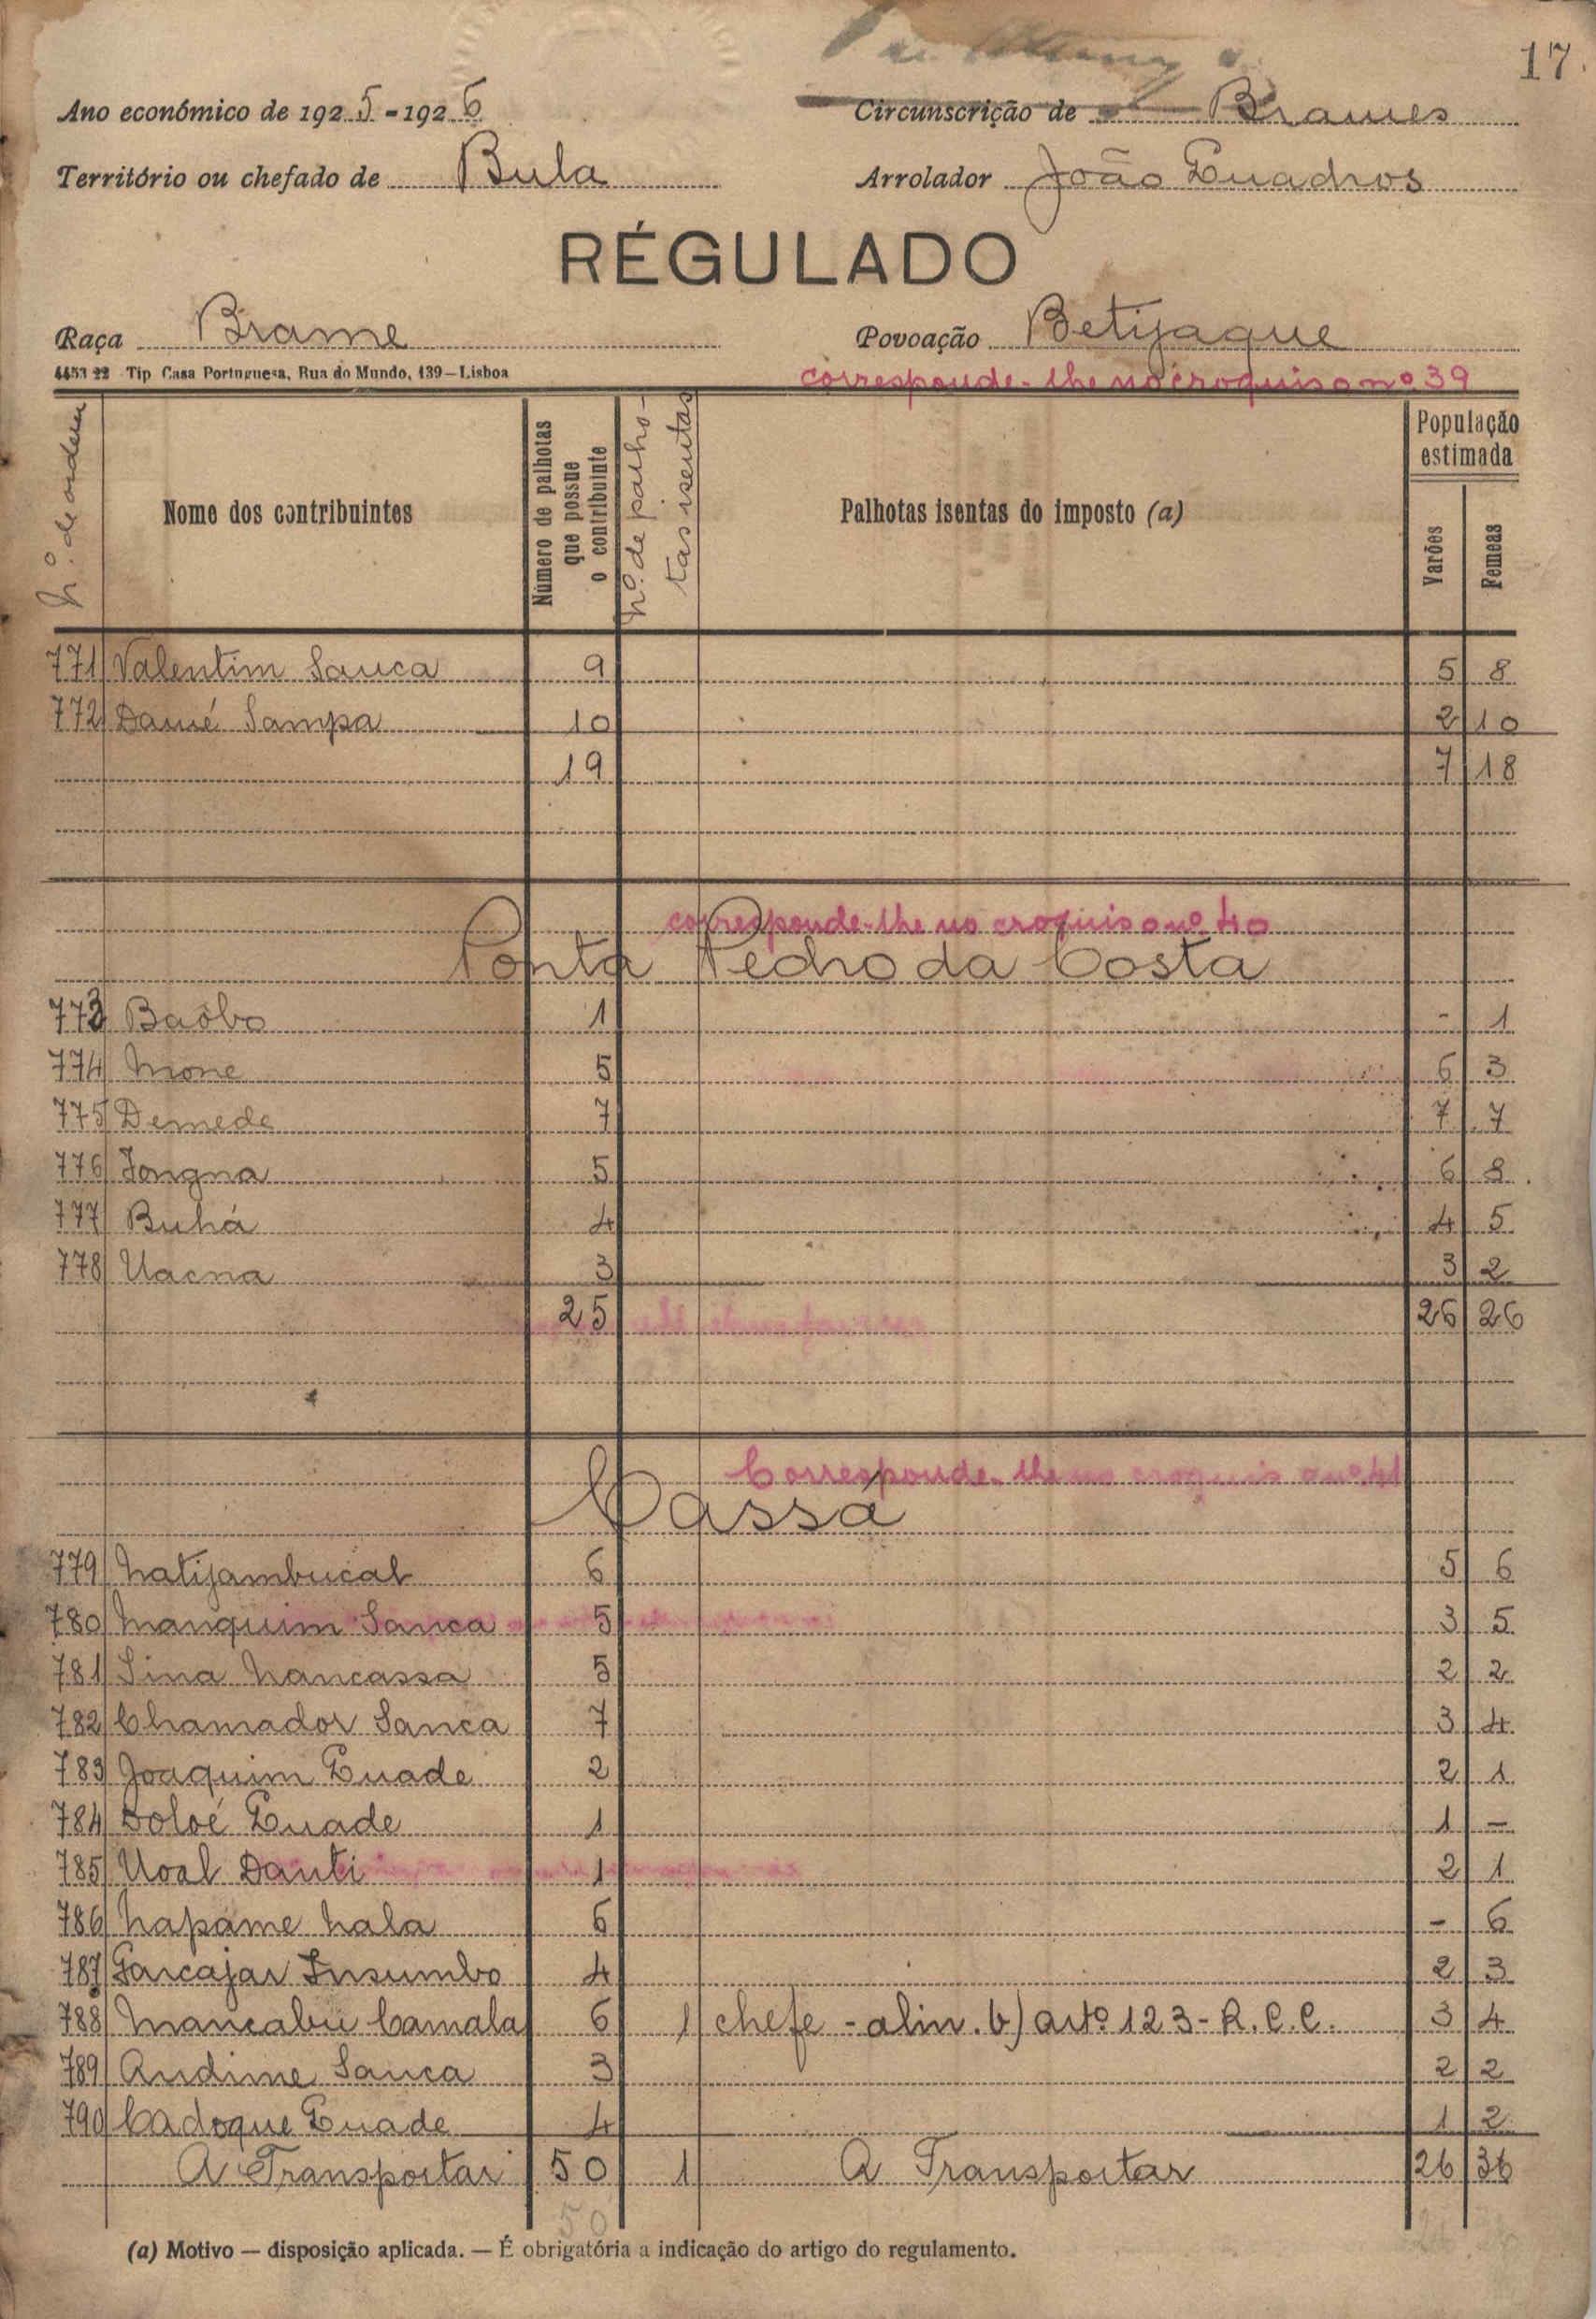 17.
Ano económico de 1925-1926 Circunscrição de Brames
Território ou chefado de Bula Arrolador João Quadros
RÉGULADO
Raça Brame Povoação Betijaque
4453 22 Tip Casa Portuguesa, Rua do Mundo, 139—Lisboa corresponde-lhe no croquis o nº 39
Nº de ordem Nome dos contribuintes Número de palhotas que possue o contribuinte nº de palhotas isentas Palhotas isentas do imposto (a) População estimada Varões Femeas
771 Valentim Sanca 9 5 8
772 Daué Sampa 10 2 10
19 7 18
corresponde-lhe no croquis o nº 40
Ponta Pedro da Costa
773 Baôbo 1 - 1
774 None 5 6 3
775 Demede 7 7 7
776 Iongna 5 6 8
777 Buhá 4 4 5
778 Uacna 3 3 2
25 26 26
Corresponde-lhe no croquis o nº 41
Cassá
779 Natijambucal 6 5 6
780 Nanquim Sanca 5 3 5
781 Sina Nancassa 5 2 2
782 Chamador Sanca 7 3 4
783 Joaquim Quade 2 2 1
784 Doloé Quade 1 1 -
785 Uoal Danti 1 2 1
786 Napáme Nala 6 - 6
787 Garcajar Insumbo 4 2 3
788 Mancabú Camala 6 1 chefe - alin. b) artº 123 - R.C.C. 3 4
789 Andime Sanca 3 2 2
790 Cadoque Quade 4 1 2
A Transportar 50 1 A Transportar 26 36
50
(a) Motivo — disposição aplicada. — É obrigatória a indicação do artigo do regulamento.